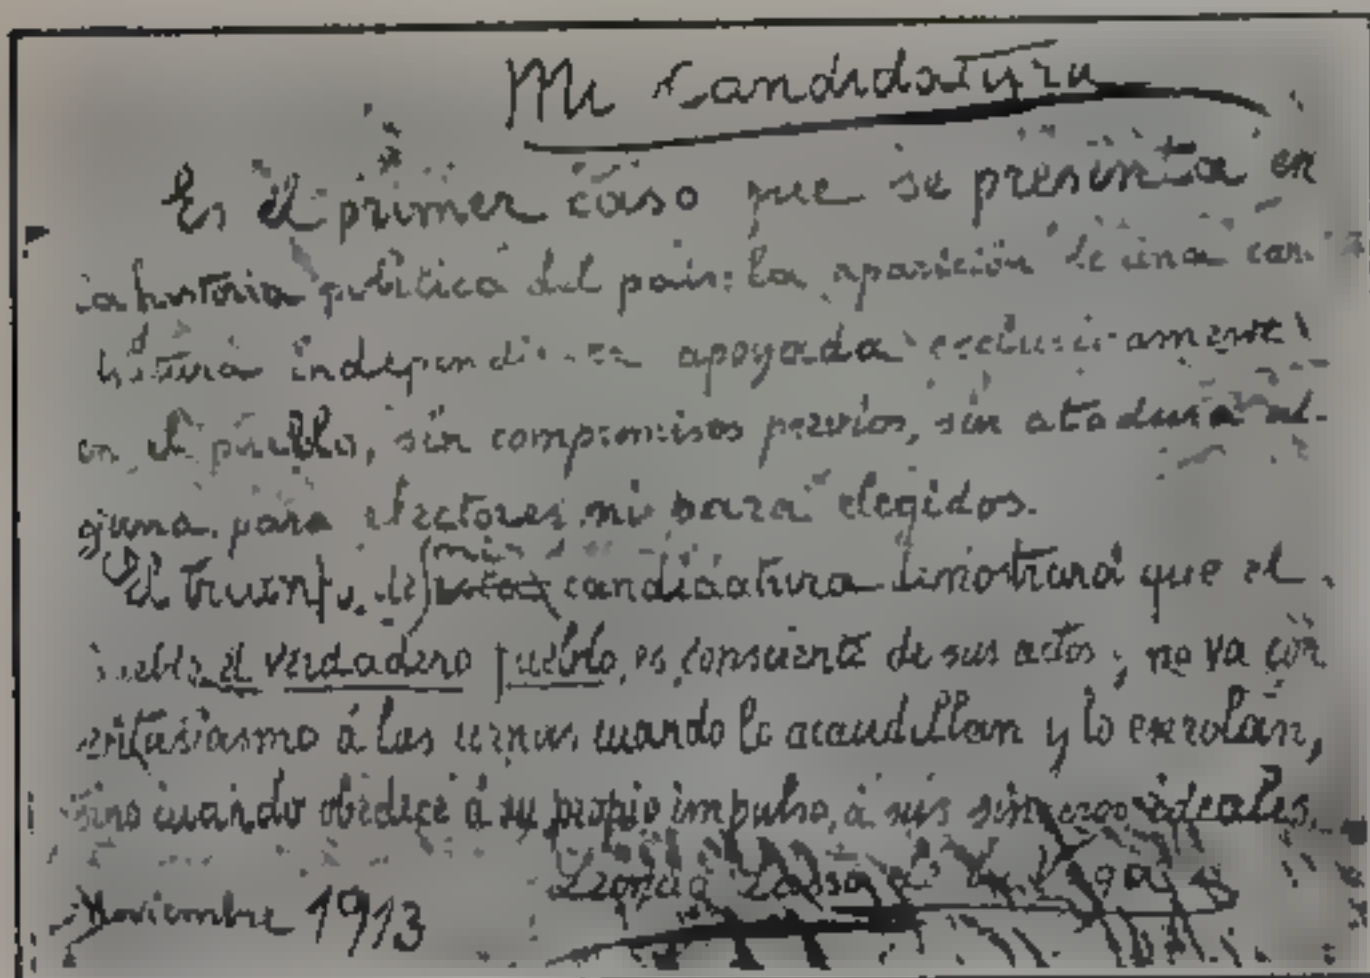 Mi Candidatura
Es el primer caso que se presenta en
la historia política del país: la aparición de una can
didatura independiente apoyada exclusivamente
en el pueblo, sin compromisos previos, sin atadura al-
guna para electores ni para elegidos.
El triunfo de candidatura demostrará que el
pueblo, el verdadero pueblo, es consciente de sus actos, no va con
entusiasmo á las urnas cuando lo acaudillan y lo enrolan,
sino cuando obedece á su propio impulso, á sus sinceros ideales.
Leoncio Lasso de la Vega
Noviembre 1913